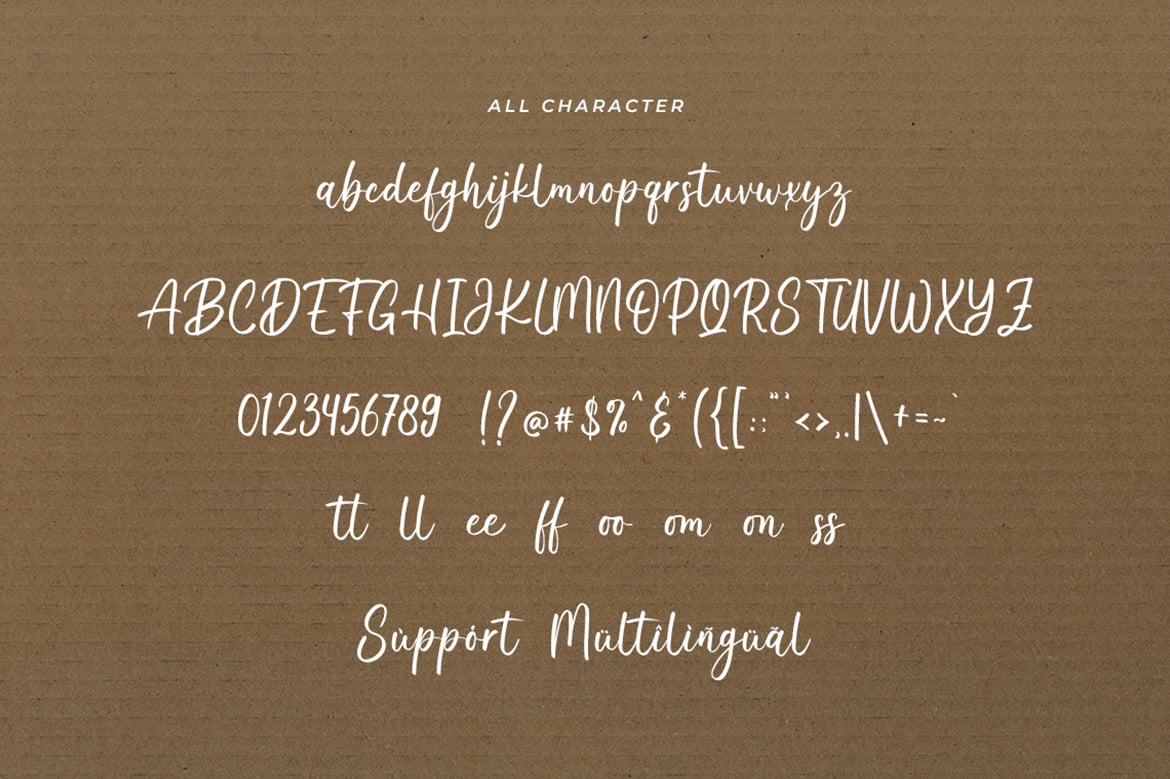 ALL CHARACTER
abcdefghijklmnopqrstuvwxyz
ABCDEFGHIJKLMNOPQRSTUVWXYZ
0123456789 !?@#$%^&*({[:;"'<>,.|\+=~`
tt ll ee ff oo om on ss
Sùppórt Mültîlìñgüãl